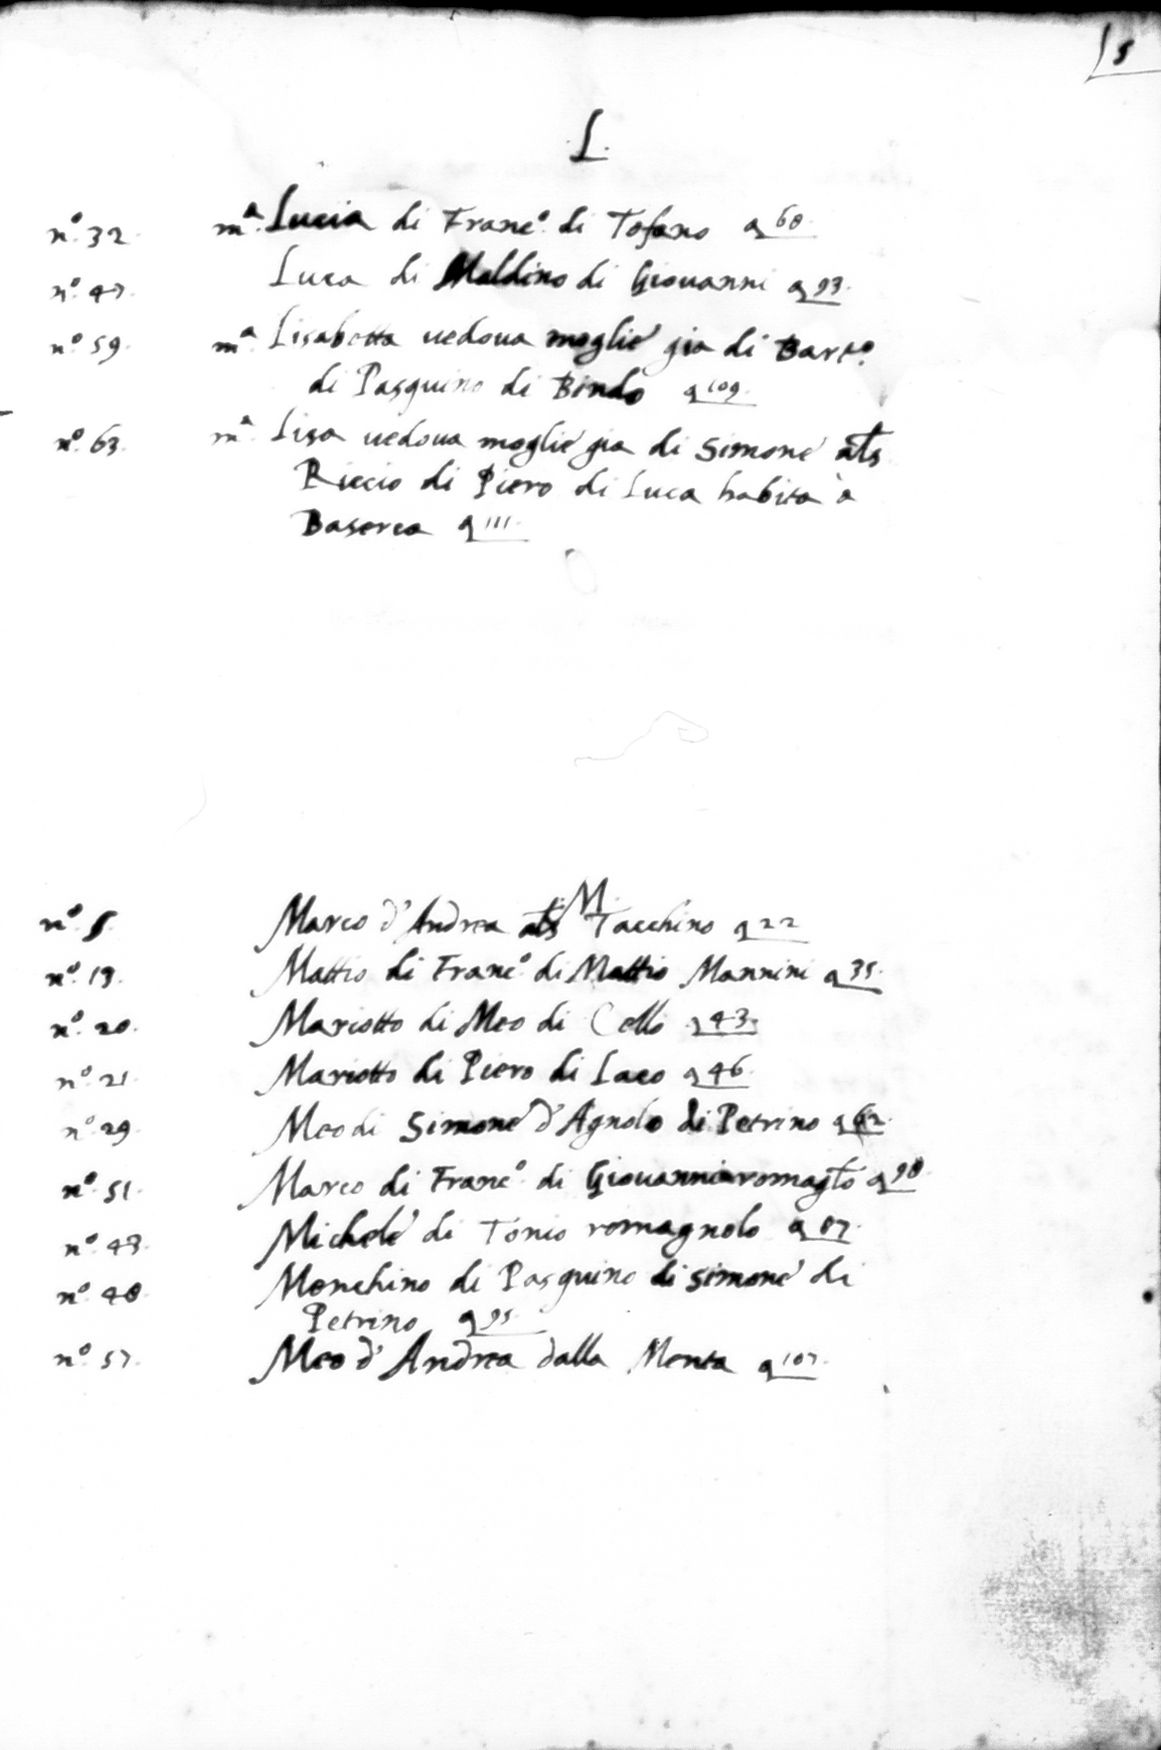 5
.L.
nº. 32. mª. Lucia di Francº. di Tofano a 68.
nº. 47. Luca di Maldino di Giouanni a 93.
nº. 59. mª Lisabetta uedoua moglie gia di Bartº.
di Pasquino di Bindo a 109.
nº. 63. mª. Lisa uedoua moglie gia di Simone als
Riccio di Piero di Luca habita à
Baserca a 111.
.M.
nº. 8. Marco d'Andrea als Tacchino a 22
nº. 13. Mattio di Francº. di Mattio Mannini a 35.
nº. 20. Mariotto di Meo di Cello a 43.
nº. 21. Mariotto di Piero di Laco a 46.
nº. 29. Meo di Simone d'Agnolo di Petrino a 62.
nº. 51. Marco di Francº. di Giouanni romaglo a 98.
nº. 43. Michele di Tonio romagnolo a 87.
nº. 48. Menchino di Pasquino di Simone di
Petrino a 95.
nº. 57. Meo d'Andrea dalla Menta a 107.